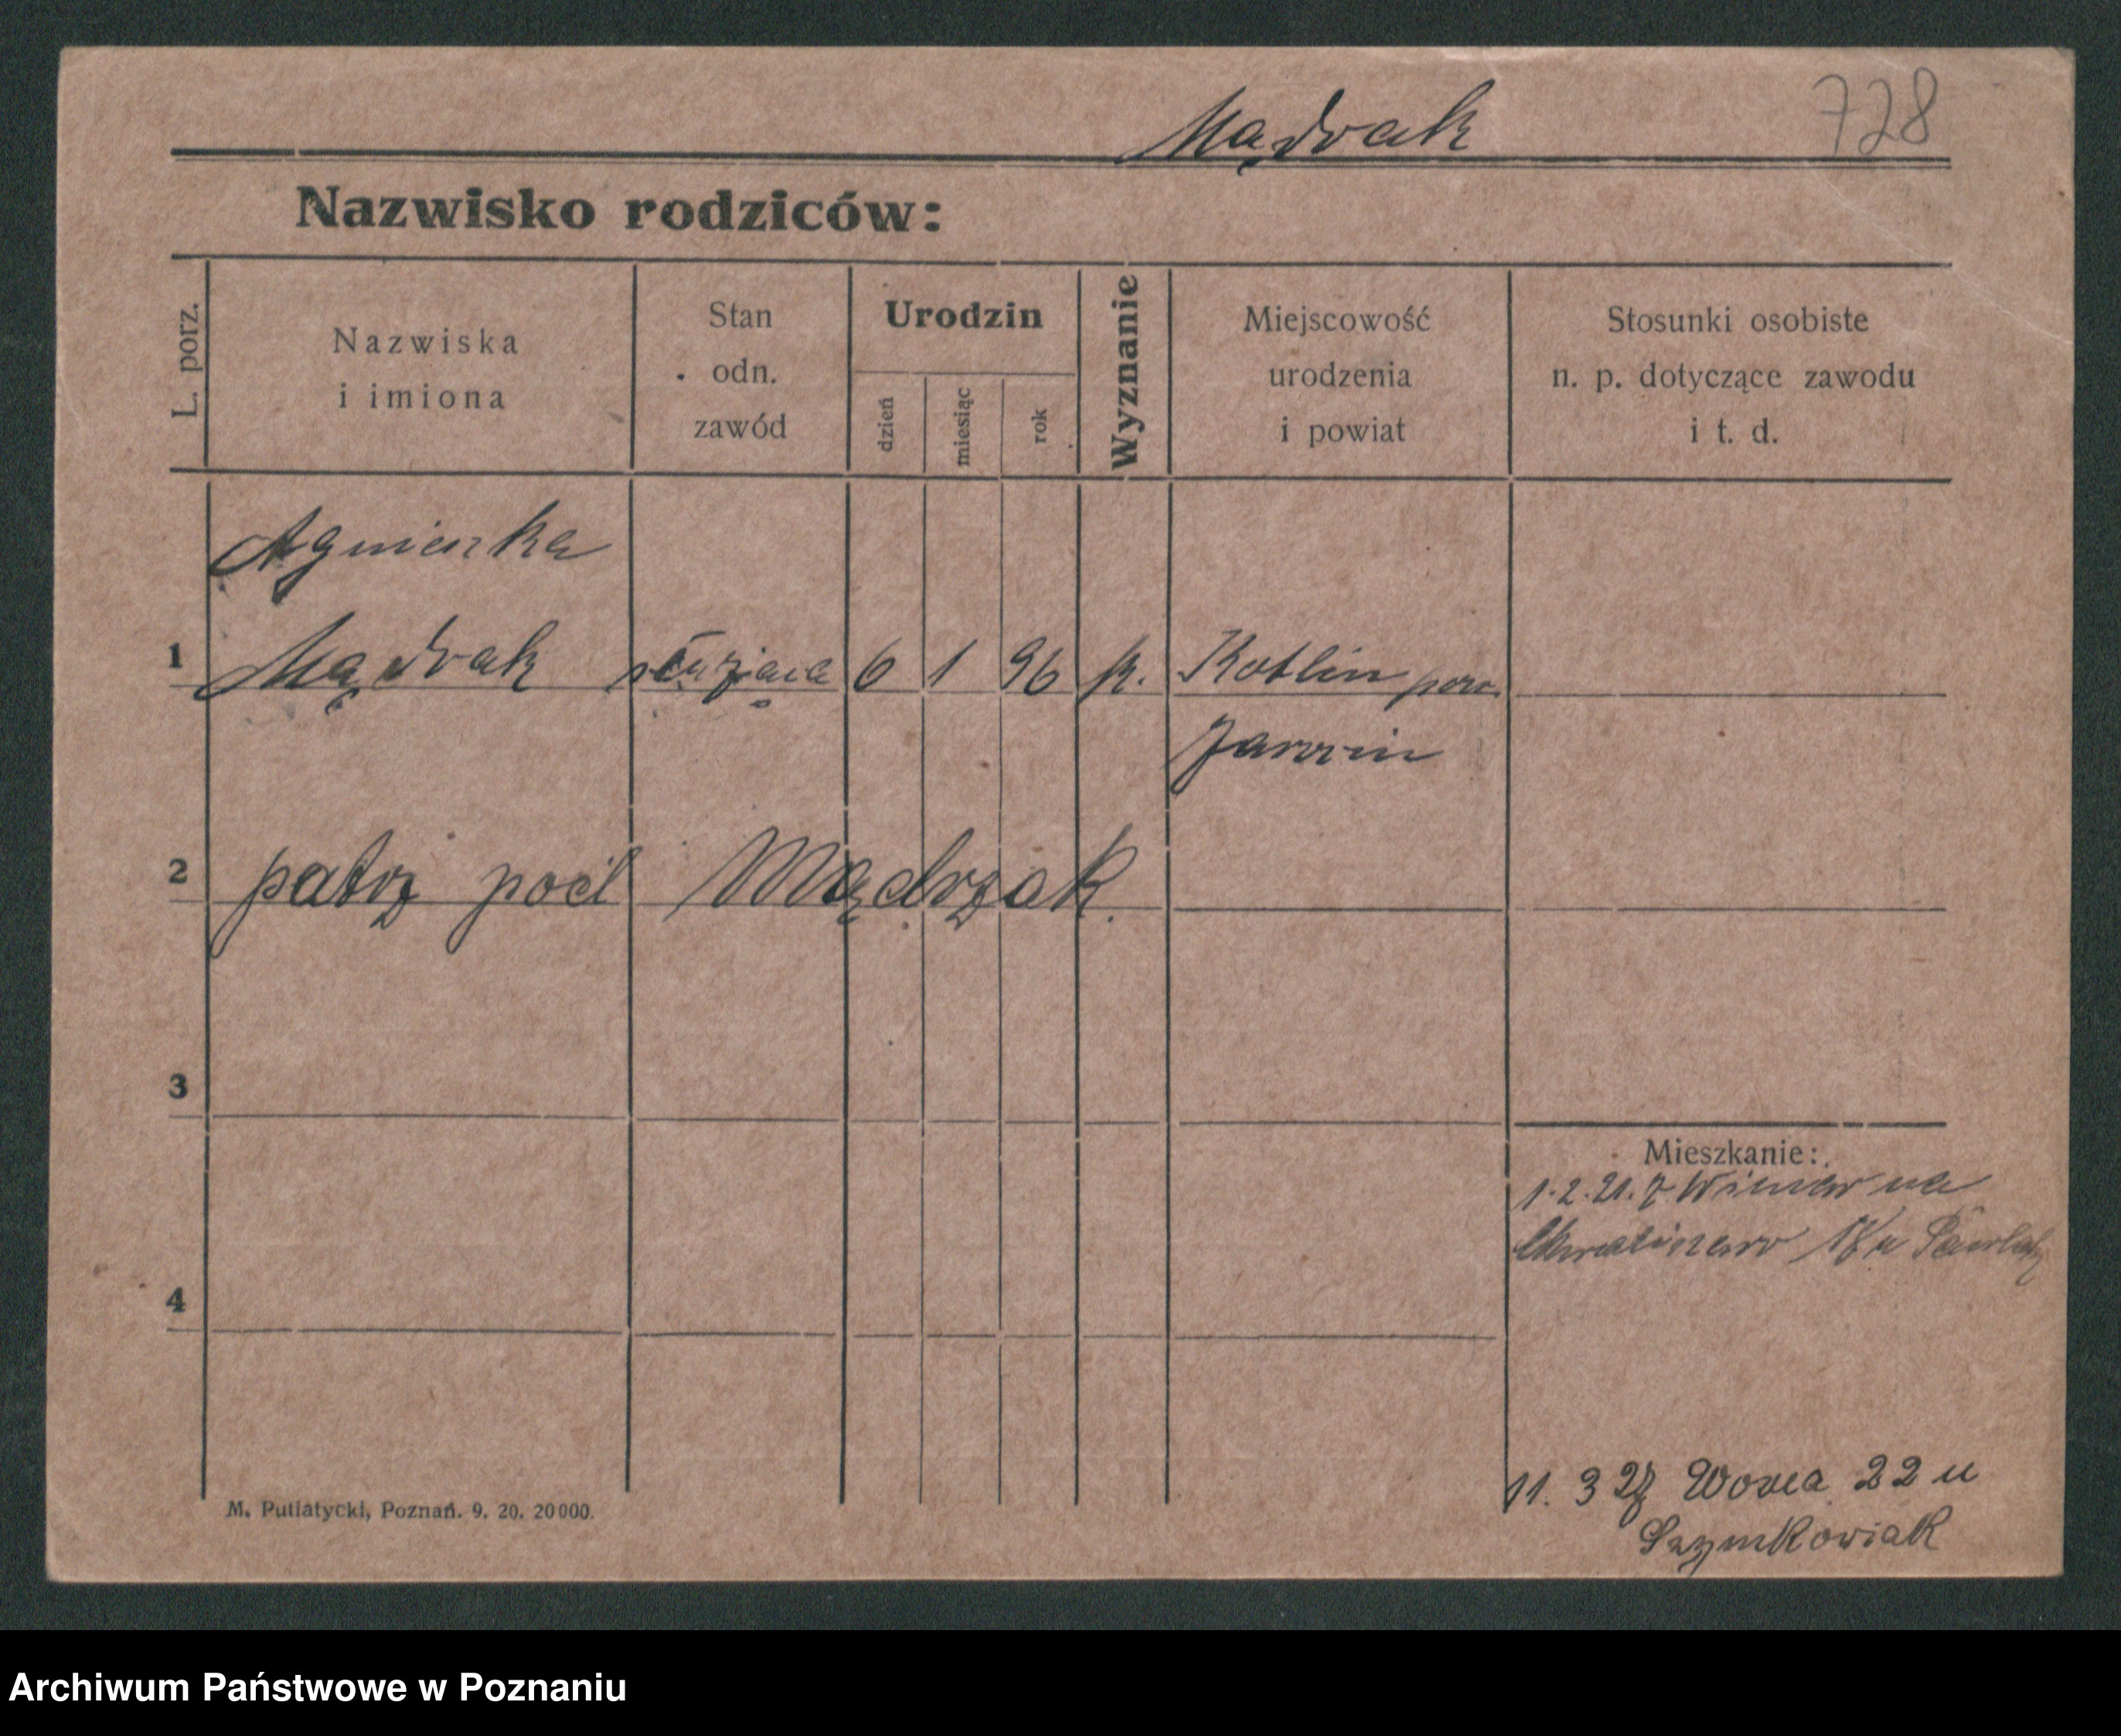 Mądrak
728
Nazwisko rodziców:
L. porz.
Nazwiska
i imiona
Stan
odn.
zawód
Urodzin
dzień
miesiąc
rok
Wyznanie
Miejscowość
urodzenia
i powiat
Stosunki osobiste
n. p. dotyczące zawodu
i t. d.
Agnieszka
1 Mądrak służąca 6 1 96 k. Kotlin pow.
Jarocin
2 patrz pod Mądrzak.
3
Mieszkanie:
1.2.21. z Winiar na
4
11. 3 22 22 u
Szymkowiak
M. Putiatycki, Poznań. 9. 20. 20000.
Archiwum Państwowe w Poznaniu